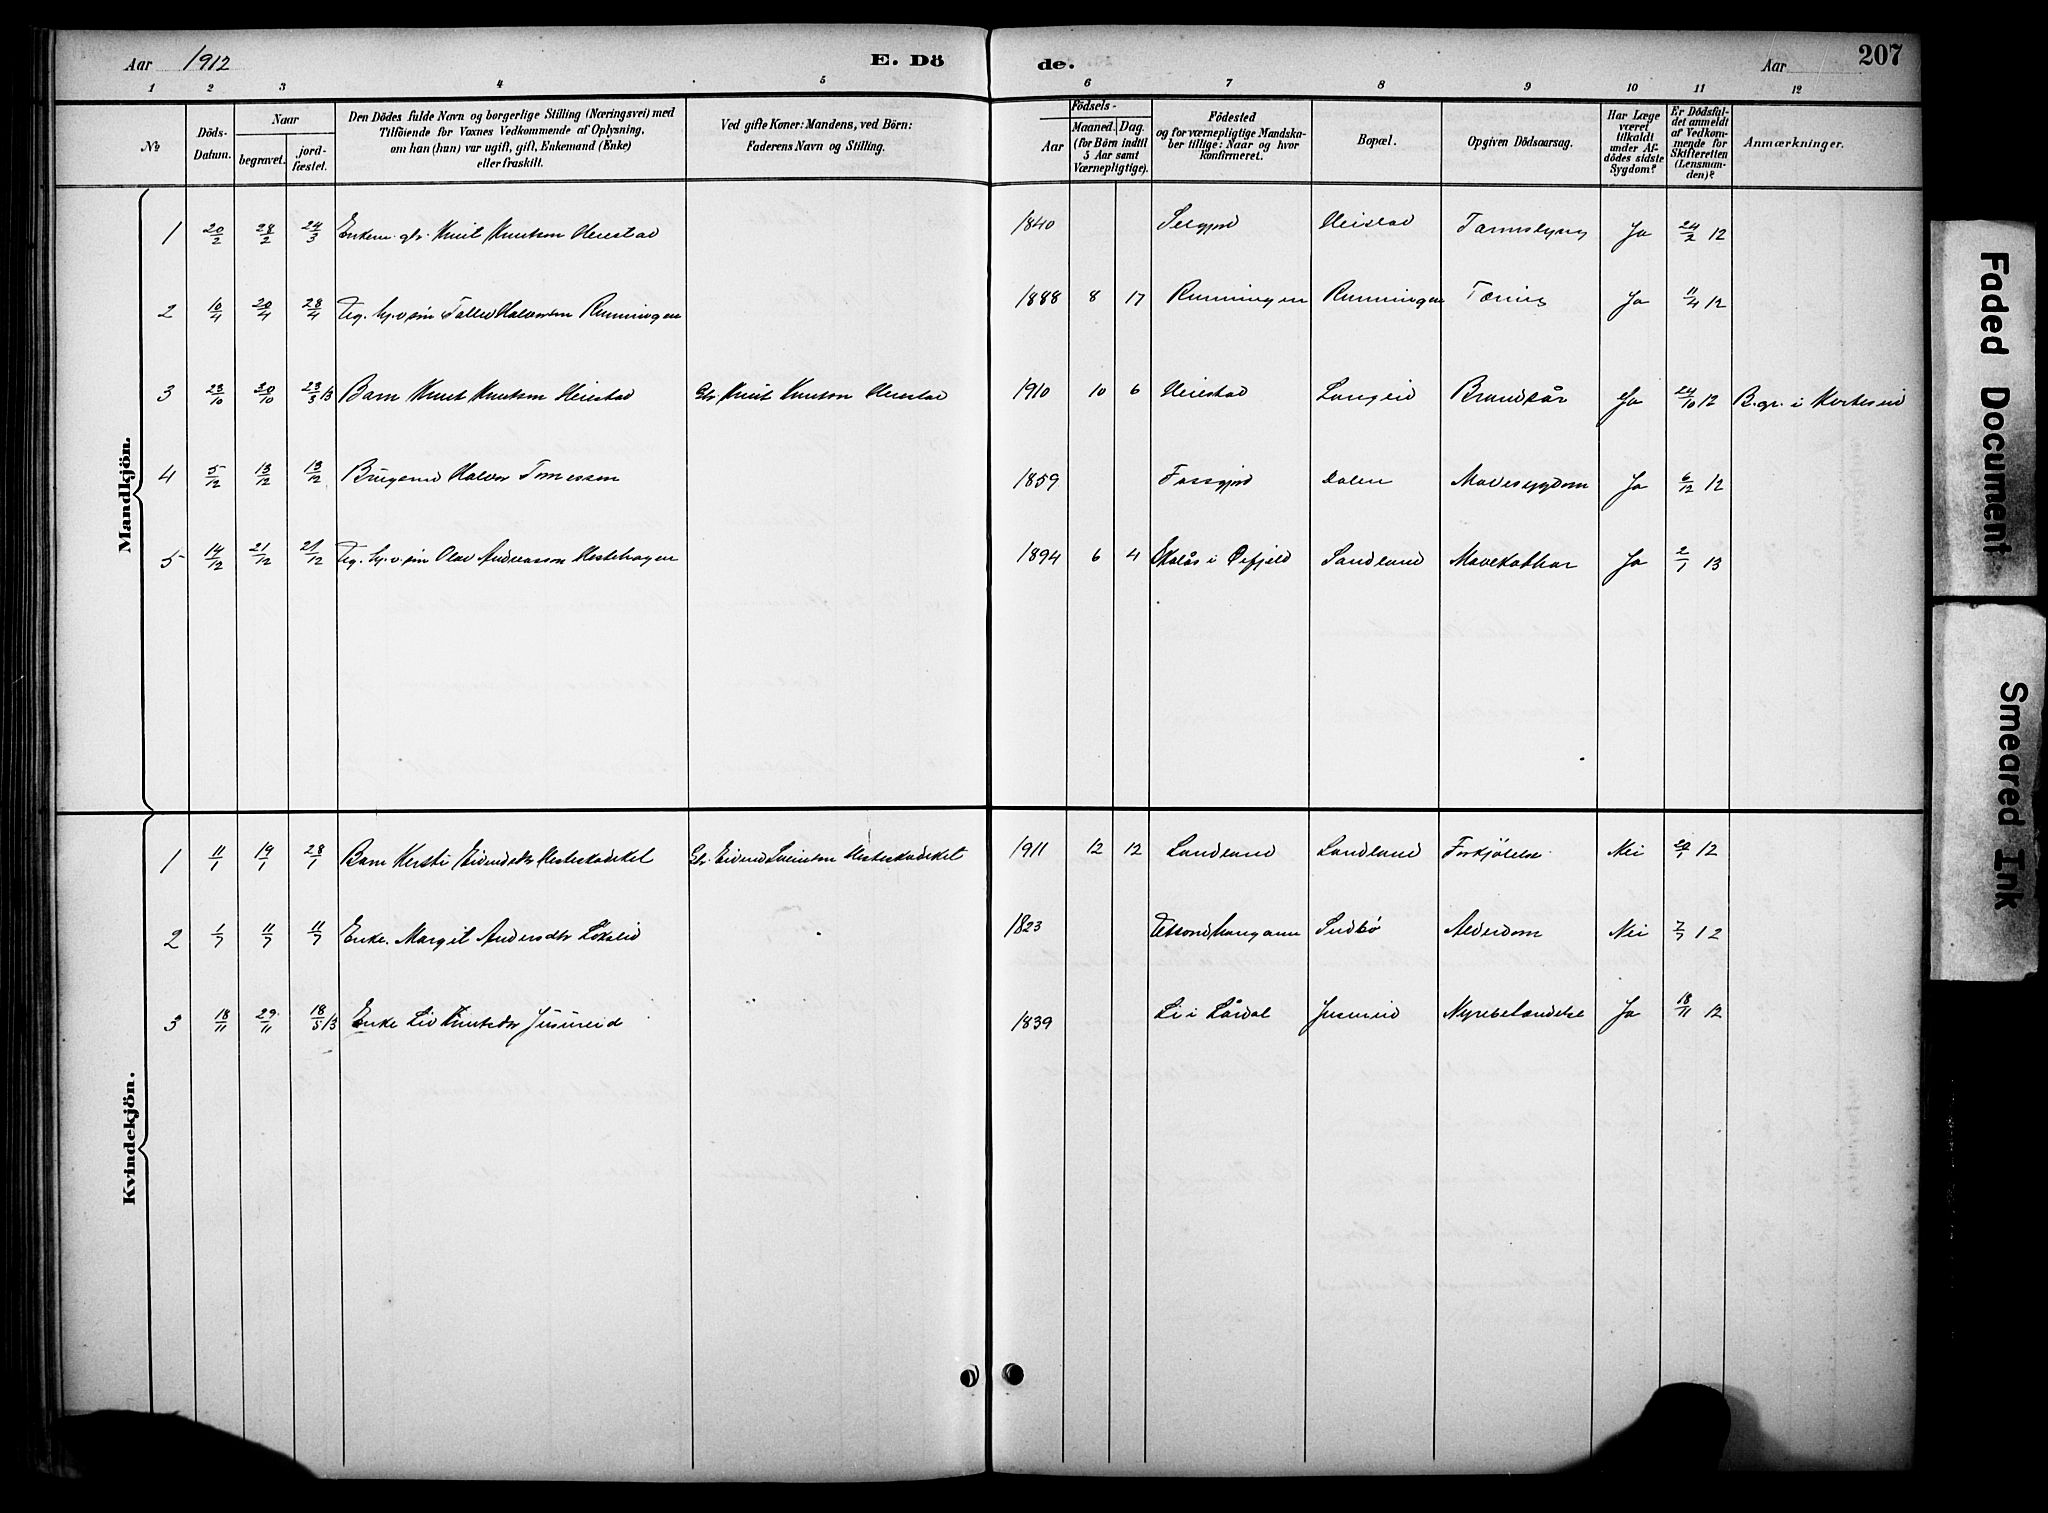 Aar 1912 E. Dö de. Aar 207
1 2 3 4 5 6 7 8 9 10 11 12
№
Döds-Datum.
Naar
begravet.
jord-fæstet.
Den Dödes fulde Navn og borgerlige Stilling (Næringsvei) med
Tilföiende for Voxnes Vedkommende af Oplysning,
om han (hun) var ugift, gift, Enkemand (Enke)
eller fraskilt.
Ved gifte Koner: Mandens, ved Börn:
Faderens Navn og Stilling.
Födsels-
Aar
Maaned. Dag.
(for Börn indtil
5 Aar samt
Værnepligtige).
Födested
og for værnepligtige Mandska-
ber tillige: Naar og hvor
konfirmeret.
Bopæl.
Opgiven Dödsaarsag.
Har Læge
været
tilkaldt
under Af-
dödes sidste
Sygdom?
Er Dödsfal-
det anmeldt
af Vedkom-
mende for
Skifteretten
(Lensman-
den)?
Anmærkninger.
Mandkjön.
1 20/2 28/2 24/3 Enkem. gbr. Knut Knutson Heiestad 1840 Heistad Ja 24/2 12
2 10/4 20/4 28/4 Ug. Halvorson Rummingen 1888 8 17 Rummingen Rummingen Ja 11/4 12
3 23/10 30/10 23/3 13 Barn Knut Knutson Heiestad Gbr. Knut Knutson Heiestad 1910 10 6 Heiestad Langeid Brandsår Ja 24/10 12 B.gr. i
4 5/12 13/12 13/12 Halvor 1859 Dalen Mavesygdom Ja 6/12 12
5 14/12 21/12 21/12 Ug. Olav Andreasson Hestehagen 1894 6 4 Skalås i Øifjeld Sandland Mavekatarr Ja 2/1 13
Kvindekjön.
1 11/1 19/1 28/1 Barn Kersti Eivindsdtr Hesteskodiket Gbr. Eivind Sveinson Hesteskodiket 1911 12 12 Sandland Sandland Forkjølelse Nei 20/1 12
2 1/7 11/7 11/7 Enke. Margit Andersdtr Løkslid 1823 Sudbø Alderdom Nei 2/7 12
3 18/11 29/11 18/5 13 Enke Liv Knutsdtr Jusureid 1839 Li i Lårdal Jusureid Nyrebetændelse Ja 18/11 12
Faded Document
Smeared Ink